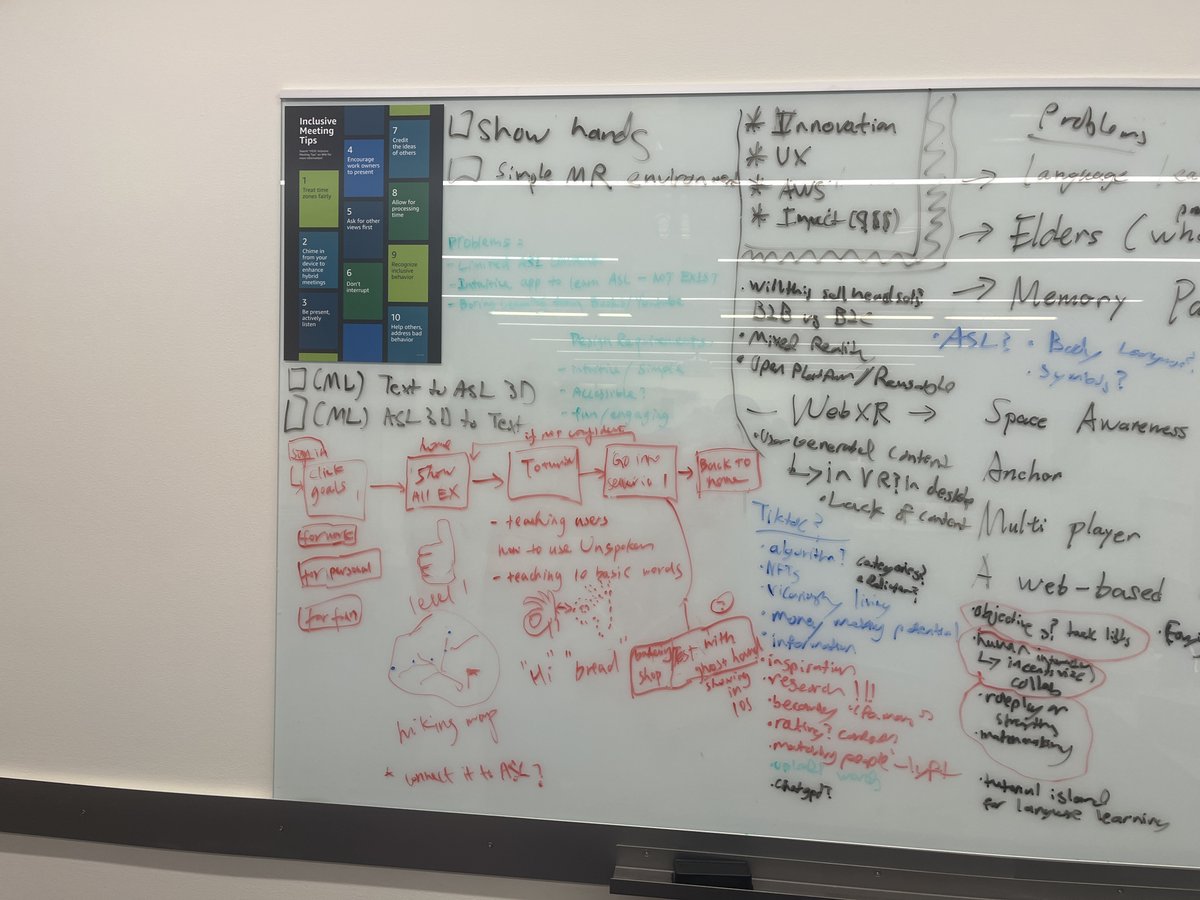 Inclusive
Meeting
Tips
1
Treat time
zones fairly
2
Chime in
from your
device to
enhance
hybrid
meetings
3
Be present,
actively
listen
4
Encourage
work owners
to present
5
Ask for other
views first
6
Don't
interrupt
7
Credit
the ideas
of others
8
Allow for
processing
time
9
Recognize
inclusive
behavior
10
Help others,
address bad
behavior
Show hands
Simple MR environment
Problems:
- Limited ASL
- Intuitive app to learn ASL - NOT EXIST?
Design Requirements
- intuitive / simple
- Accessible?
- fun/engaging
(ML) Text to ASL 3D
(ML) ASL 3D to Text
* Innovation
* UX
* AWS
* Impact
• will this sell headsets?
B2B vs B2C
• Mixed Reality
• Open Platform/Reusable
- WebXR →
• User Generated Content
in VR? In desktop
• Lack of content
Problems
→ Language
→ Elders
→ Memory
• ASL? • Body Language?
• Symbols?
Space Awareness
Anchor
Multi player
A web-based
• objectives? task lists
• human
incentivize
collab
• roleplay or
• matchmaking
• tutorial island
for language learning
Tiktok?
• algorithm?
• NFTs
categories?
• living
• money making potential
• information
• inspiration
• research !!!
• rating?
• matching people - lyft
• chatgpt?
sign in
click
goals
for work
for personal
for fun
home
Show
All EX
if not confident
Tutorial
Go into
scenario 1
Back to
home
- teaching users
how to use Unspoken
- teaching 10 basic words
level 1
"Hi" "bread"
shop
test with
ghost hand
showing
in
hiking map
* connect it to ASL?